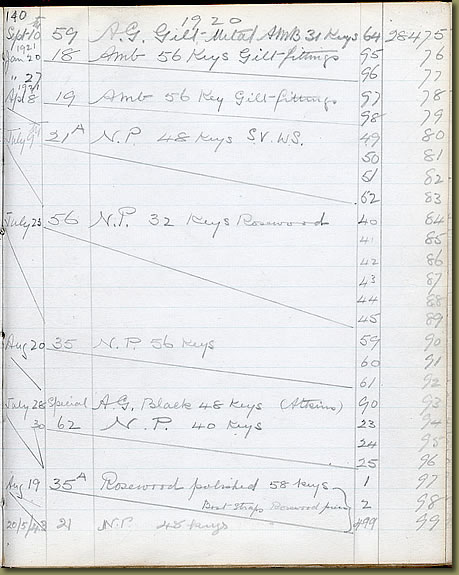 140 1920
Sept 10th 59 A.G. Gilt-Metal Amb 31 Keys 64 28475
1921
Jan 20 18 Amb 56 Keys Gilt-fittings 95 76
" 27 96 77
1921
Apl 8 19 Amb 56 Key Gilt-fittings 97 78
98 79
July 9th 21A N.P. 48 Keys S.V. W.S. 49 80
50 81
51 82
62 83
July 23 56 N.P. 32 Keys Rosewood 40 84
41 85
42 86
43 87
44 88
45 89
Aug 20 35 N.P. 56 Keys 59 90
60 91
61 92
July 28 Special A.G. Black 48 Keys (Atkins) 90 93
30 62 N.P. 40 Keys 23 94
24 95
25 96
Aug 19 35A Rosewood polished 58 Keys 1 97
Best Straps Rosewood 2 98
20/5/ 21 N.P. 45 Keys 499 99